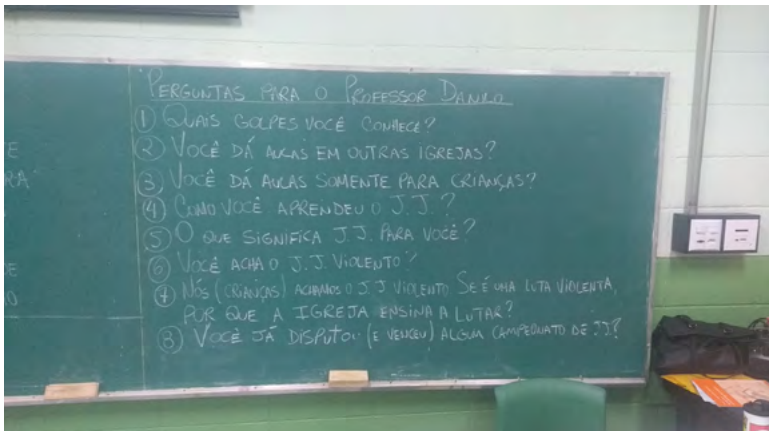 PERGUNTAS PARA O PROFESSOR DANILO
① QUAIS GOLPES VOCÊ CONHECE?
② VOCÊ DÁ AULAS EM OUTRAS IGREJAS?
③ VOCÊ DÁ AULAS SOMENTE PARA CRIANÇAS?
④ COMO VOCÊ APRENDEU O J.J.?
⑤ O QUE SIGNIFICA J.J. PARA VOCÊ?
⑥ VOCÊ ACHA O J.J. VIOLENTO?
⑦ NÓS (CRIANÇAS) ACHAMOS O J.J VIOLENTO SE É UMA LUTA VIOLENTA,
POR QUE A IGREJA ENSINA A LUTAR?
⑧ VOCÊ JÁ DISPUTOU (E VENCEU) ALGUM CAMPEONATO DE JJ?